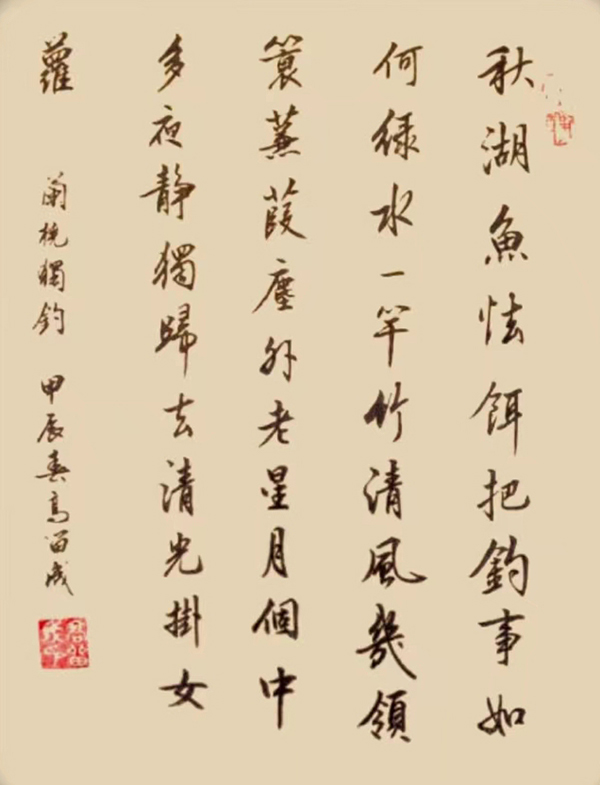 秋湖魚怯餌把釣事如
何緑水一竿竹清風幾領
簑蒹葭塵外老星月個中
多夜静獨歸去清光掛女
蘿
蘭橈獨釣 甲辰春高留成